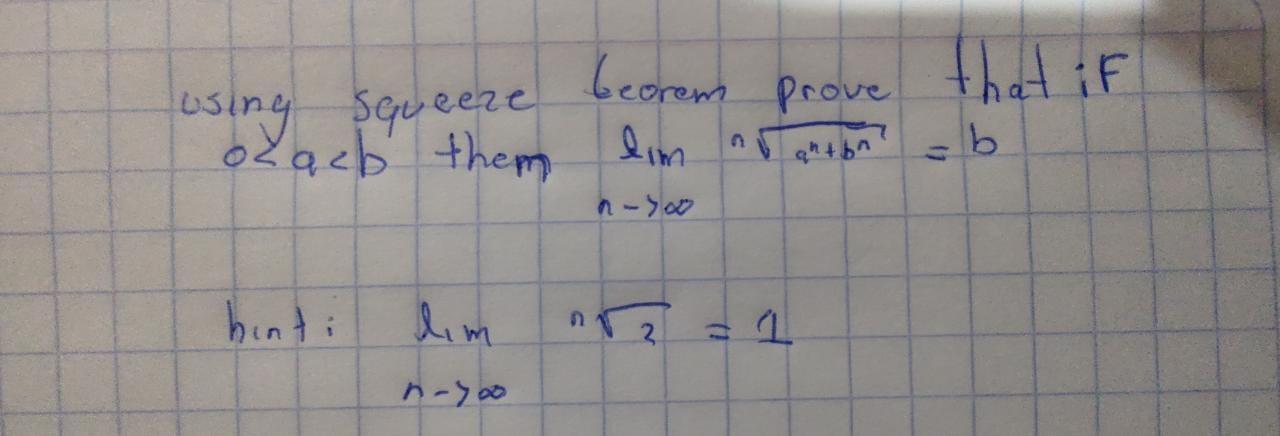 using squeeze teorem prove that if
0<a<b them lim ⁿ√(aⁿ+bⁿ) = b
n->∞
hint: lim ⁿ√2 = 1
n->∞